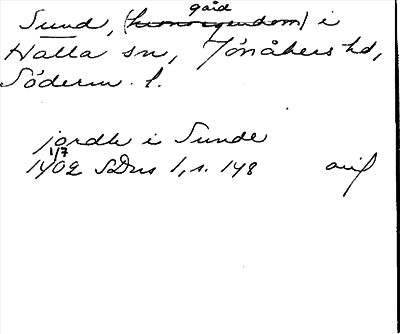 gård
Sund, (kronoegendom) i
Halla sn, Jönåkers hd,
Söderm. l.
jordh i Sunde
1/7
1402 SDns 1, s. 148 avif